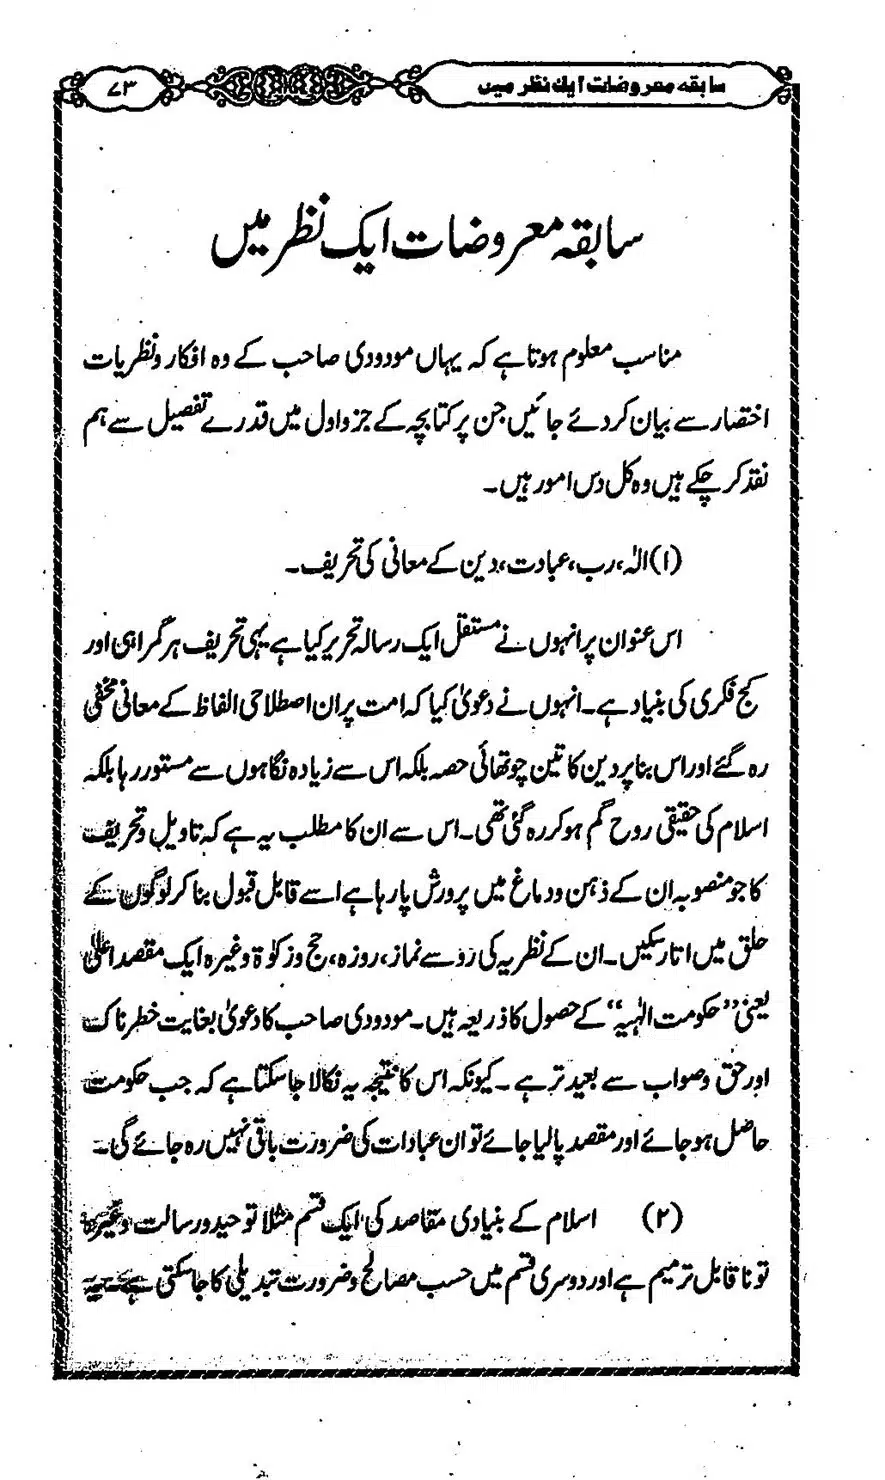 سابقہ معروضات ایک نظر میں
۷۳
سابقہ معروضات ایک نظر میں
مناسب معلوم ہوتا ہے کہ یہاں مودودی صاحب کے وہ افکار ونظریات
اختصار سے بیان کردئے جائیں جن پر کتابچہ کے جزو اول میں قدرے تفصیل سے ہم
نقد کر چکے ہیں وہ کل دس امور ہیں۔
(۱) الٰہ، رب، عبادت، دین کے معانی کی تحریف۔
اس عنوان پر انہوں نے مستقل ایک رسالہ تحریر کیا ہے یہی تحریف ہر گمراہی اور
کج فکری کی بنیاد ہے۔ انہوں نے دعویٰ کیا کہ امت پر ان اصطلاحی الفاظ کے معانی مخفی
رہ گئے اور اس بنا پر دین کا تین چوتھائی حصہ بلکہ اس سے زیادہ نگاہوں سے مستور رہا بلکہ
اسلام کی حقیقی روح گم ہو کر رہ گئی تھی۔ اس سے ان کا مطلب یہ ہے کہ تاویل وتحریف
کا جو منصوبہ ان کے ذہن ودماغ میں پرورش پا رہا ہے اسے قابل قبول بنا کر لوگوں کے
حلق میں اتار سکیں۔ ان کے نظریہ کی رو سے نماز، روزہ، حج وزکوٰۃ وغیرہ ایک مقصد اعلیٰ
یعنی ”حکومت الٰہیہ“ کے حصول کا ذریعہ ہیں۔ مودودی صاحب کا دعویٰ بغایت خطرناک
اور حق وصواب سے بعید تر ہے۔ کیونکہ اس کا نتیجہ یہ نکالا جاسکتا ہے کہ جب حکومت
حاصل ہو جائے اور مقصد پالیا جائے تو ان عبادات کی ضرورت باقی نہیں رہ جائے گی۔
(۲) اسلام کے بنیادی مقاصد کی ایک قسم مثلا توحید ورسالت وغیرہ
تو نا قابل ترمیم ہے اور دوسری قسم میں حسب مصالح وضرورت تبدیلی کا جاسکتی ہے